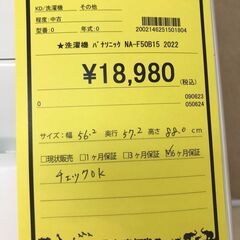 KD/洗濯機 その他
程度:中古
型番:0 年式:0
2002146251501804
★洗濯機 パナソニック NA-F50B15 2022
¥18,980(税込)
090623
050624
サイズ:幅 56.2 奥行 57.2 高さ 88.0 cm
□現状販売 □1ヶ月保証 ☑6ヶ月保証
チェックOK